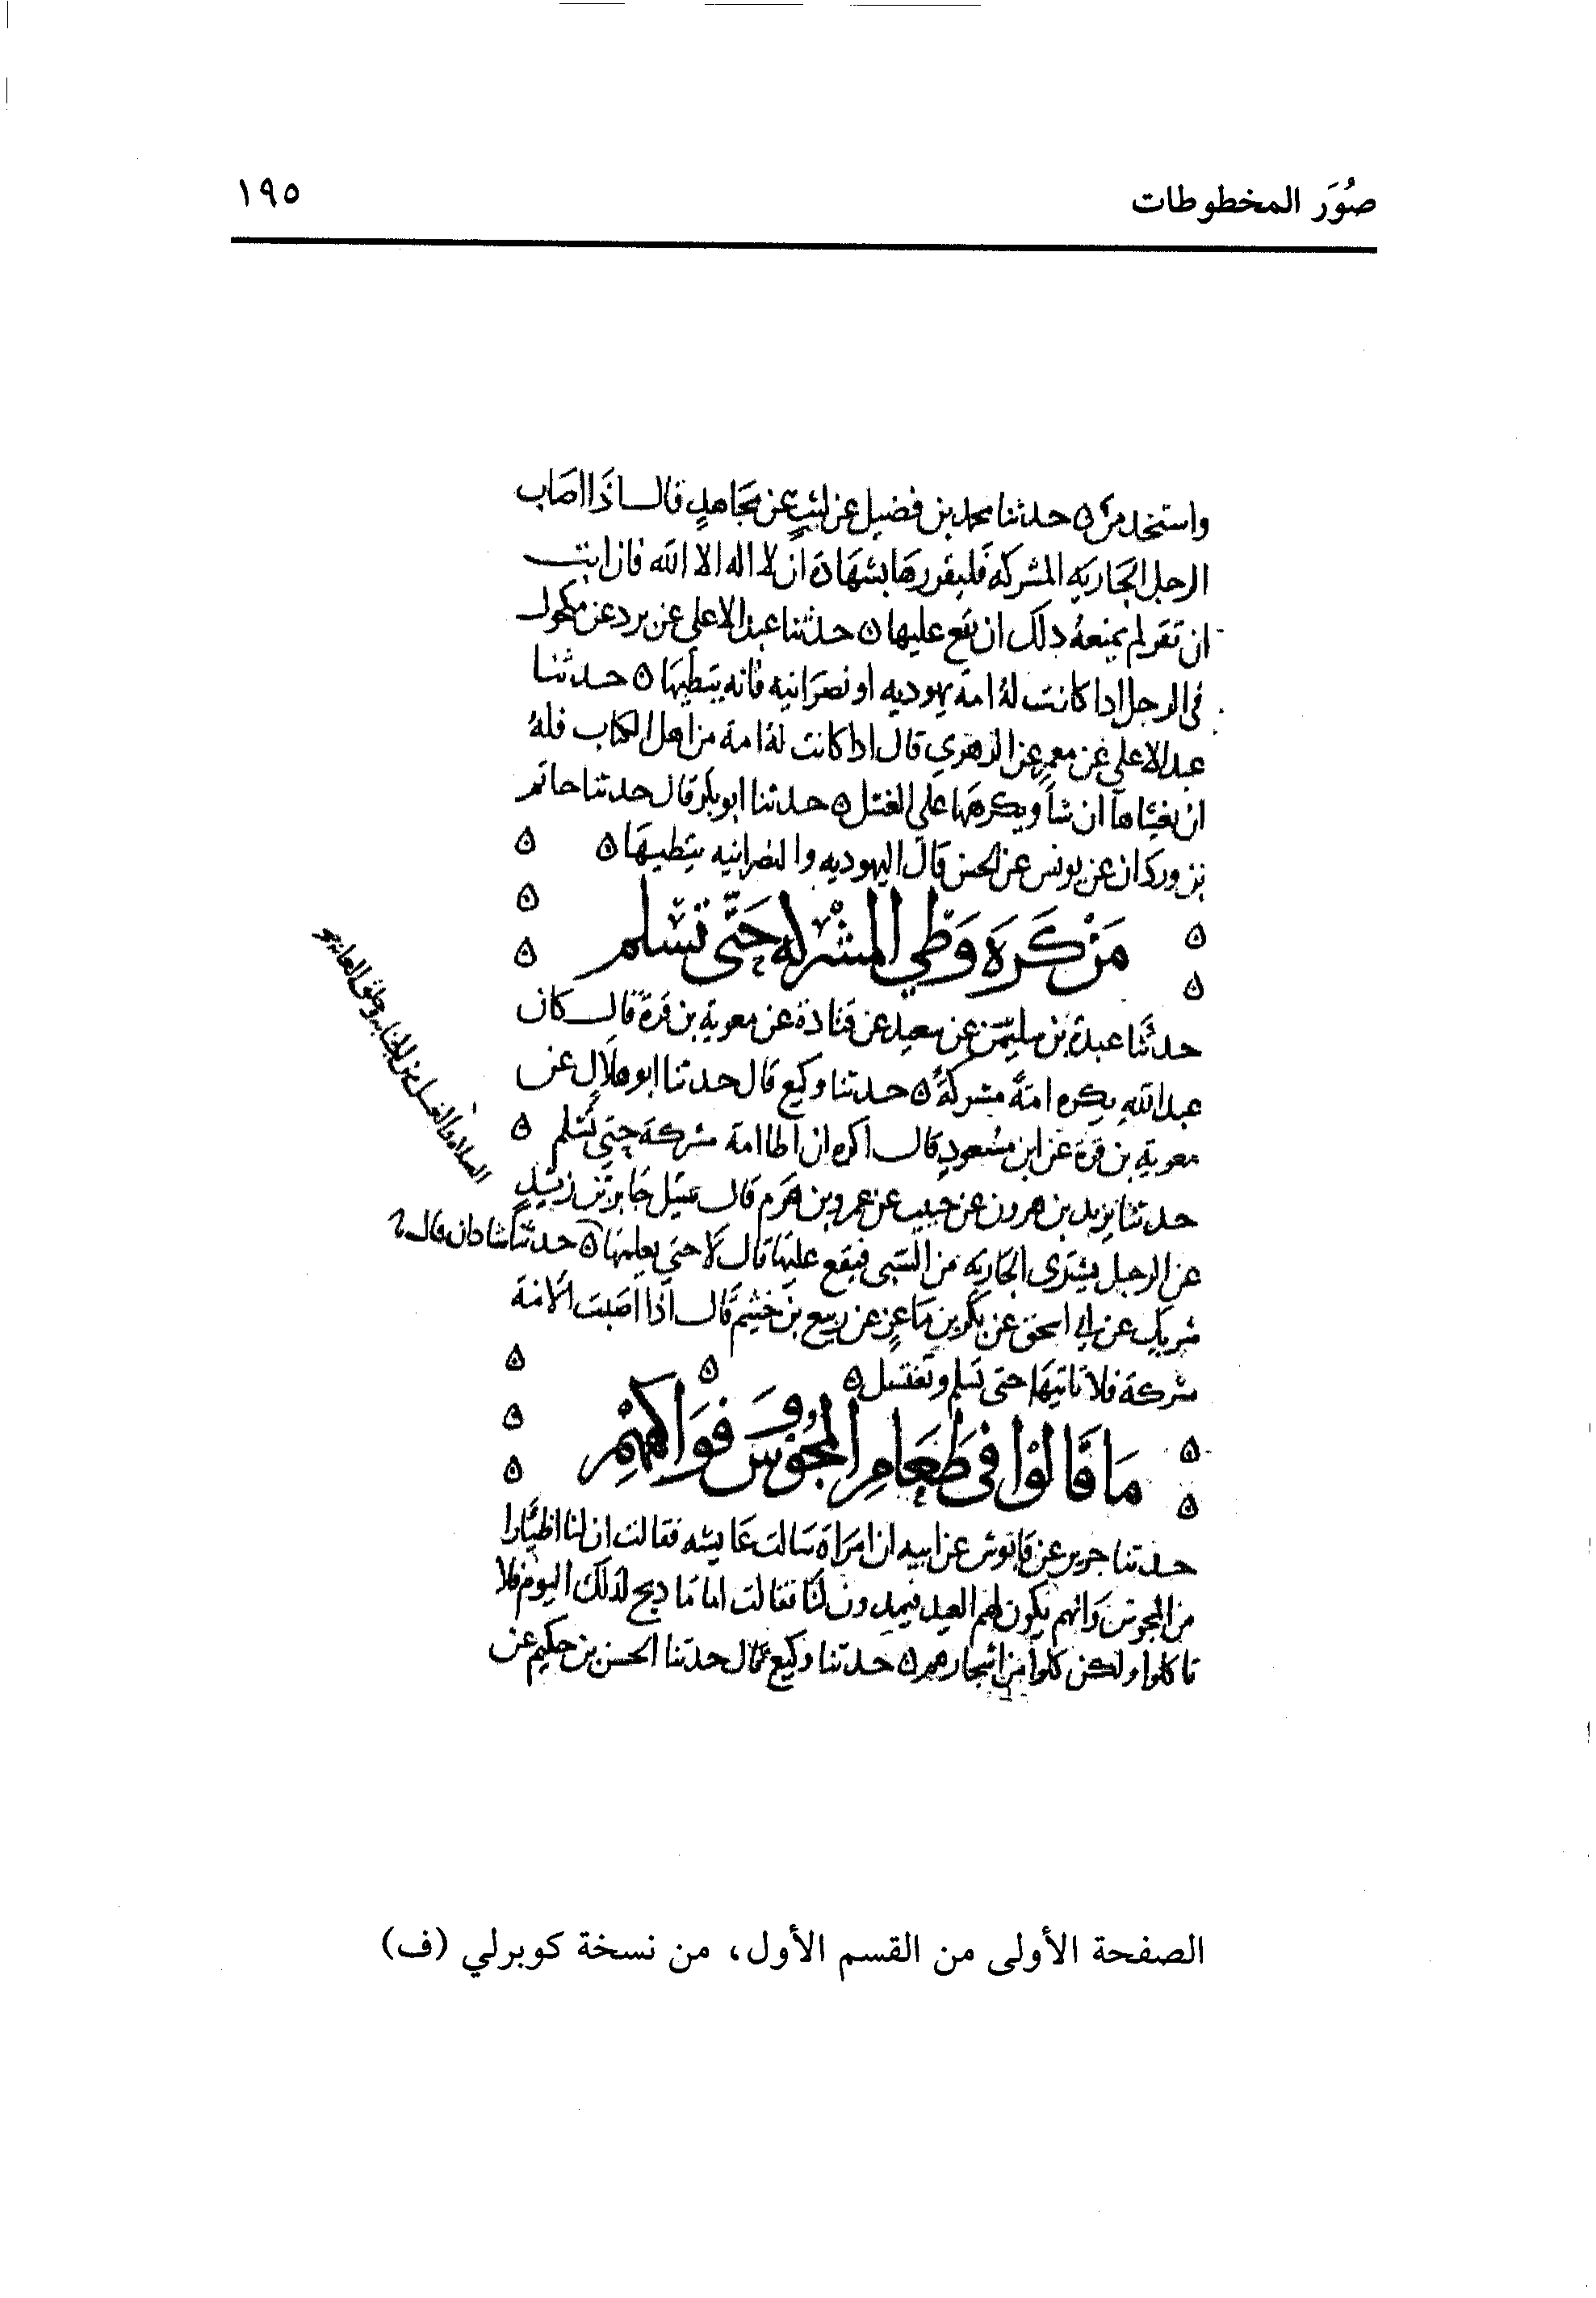 صُوَر المخطوطات
١٩٥
واستخدمن ۵ حدثنا محمد بن فضيل عن ليث عن مجاهدٍ قال اذَا اصَاب
الرجل الجَاريَه المشركه فَليقررهَا بشهَادة ان لا اله الا الله فان ابت
ان تقر لم يمنعهُ دلك ان يقع عليها ۵ حدثنا عبد الاعلى عن برد عن مكحول
فى الرجل ادا كانت لهُ امة يهوديه او نصرَانيه فانه يتطيهَا ۵ حدثنا
عبد الاعلي عن معمر عن الزهري قال ادا كانت لهُ امة من اهل الكتاب فلهُ
ان يغشاها ان شا ويكرههَا على الغسل ۵ حدثنا ابو بكر قال حدثنا حاتم
بن وردان عن يونس عن الحسن قال اليهوديه والنصرانيه يتطيهَا ۵ ۵
۵
مَنْ كَرِهَ وَطْي المشركه حَتَّى تسْلم ۵
۵ ۵
حدثنَا عبدة بن سليمن عن سعيد عن قتادة عن معوية بن قرة قال كان
عبد اللهِ يكره امتهُ مشركةً ۵ حدثنا وكيع قال حدثنا ابو هلالٍ عن
معوية بن قرة عن ابن مسْعودٍ قال اكره ان اطا امة مشركة حتى تسْلم ۵
حدثنا يزيد بن هرون عن حبيب عن عمرو بن هَرم قال سيل جَابر بن زيْدٍ
عن الرجل يشترى الجَاريه من السّبى فيقع عليهَا قال لا حتى يعلمهَا ۵ حدثنا شادان قال ؟
شريك عن ابى اسحق عن بكر بن مَاعزٍ عن ربيع بن خثيم قال اذَا اصَبت الامة
مشركة فلا تاتيهَا حتى تسلم وتغتسل ۵ ۵ ۵
۵
۵ مَا قَالوْا فى طَعَامِ المَجُوْسِ وَفوَاكههِمْ
۵ ۵
حدثنا جرير عن قابوس عن ابيه ان امرَاة سَالت عَايشه فقالت ان لنا اظيَارا
من المجوس وَانهم يكون لهم العيد فيهدون لنَا فقالت اما مَا دبح لذلك اليوم فلا
تاكلوا ولكن كلوا من اشجارهم ۵ حدثنا وكيع قال حدثنا الحسن بن حكيم عن
الصفحة الأولى من القسم الأول، من نسخة كوبرلي (ف)